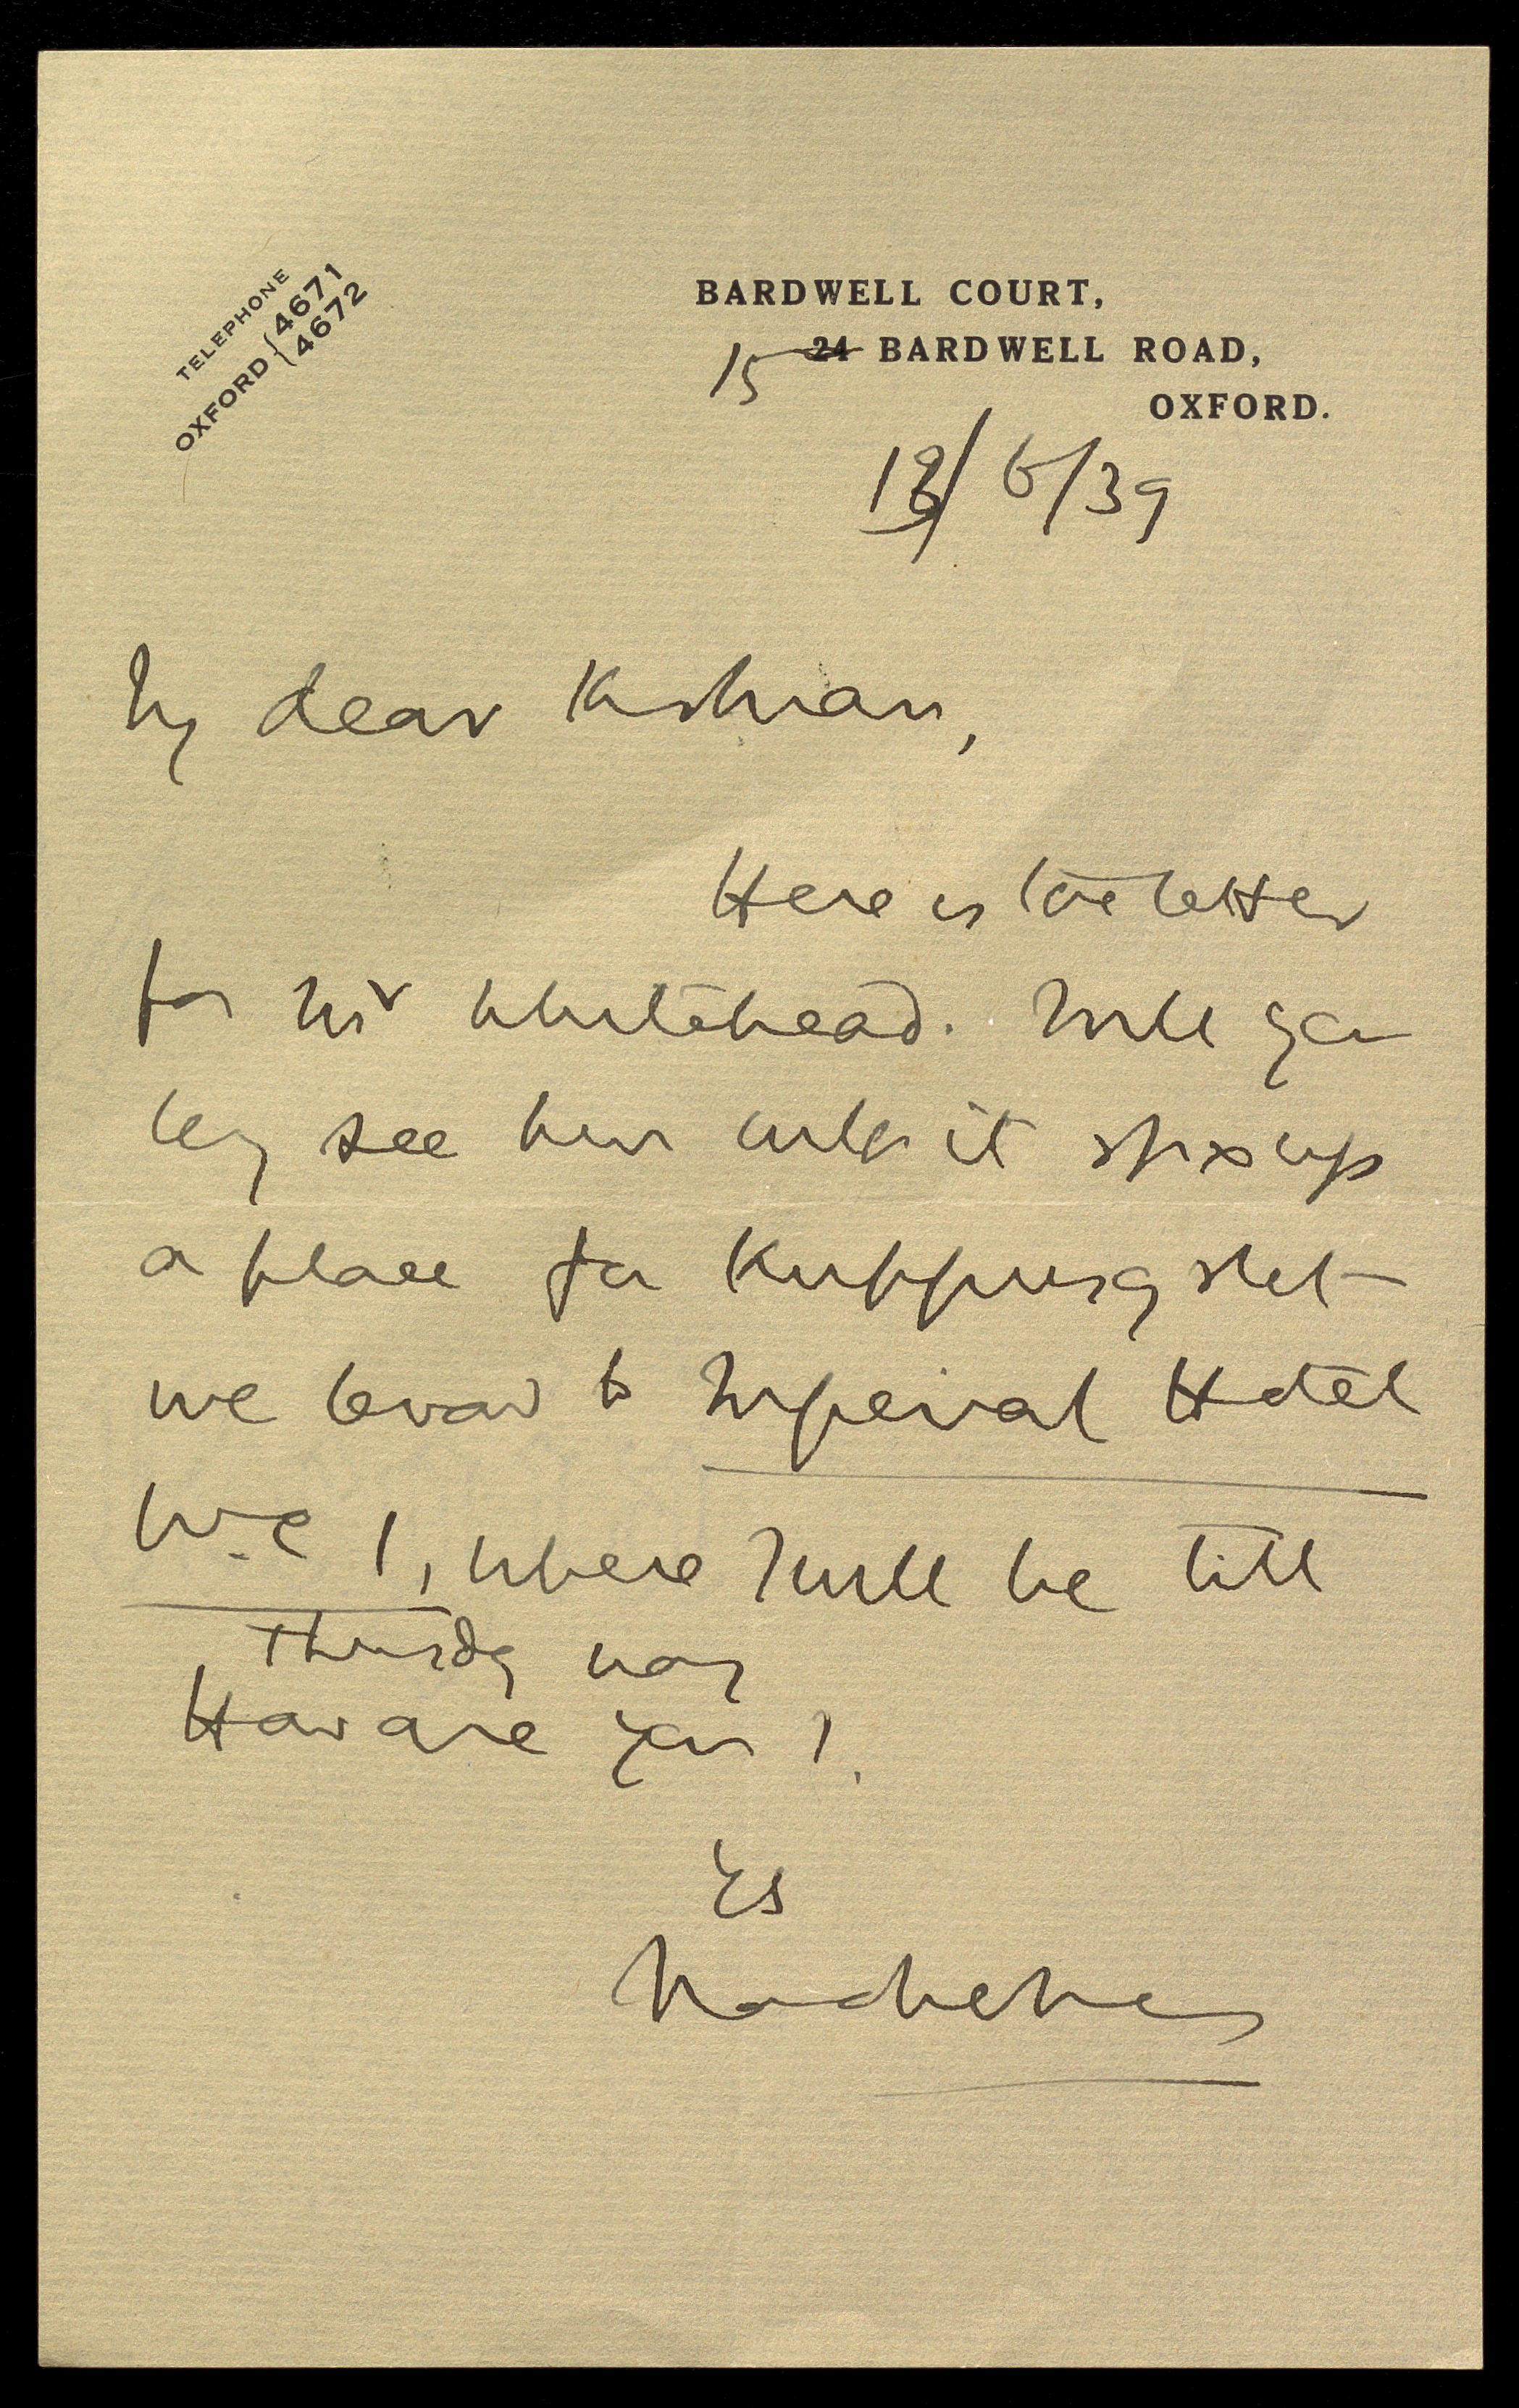 TELEPHONE
OXFORD { 4671
4672
BARDWELL COURT,
15 24 BARDWELL ROAD,
OXFORD.
18/6/39
My dear Krishnan,
Here is the letter
for Mr Whitehead. Will you
see him with it & fix up
a place for Kuppu &
to Imperial Hotel
W.C 1, where I will be till
Thursday
How are you?
Ys